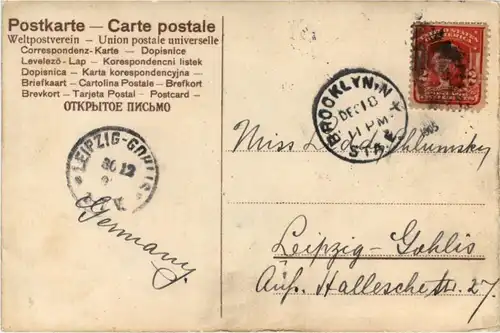 Postkarte — Carte postale
Weltpostverein – Union postale universelle
Correspondenz-Karte – Dopisnice
Levelező-Lap – Korespondencni listek
Dopisnica – Karta korespondencyjna –
Briefkaart – Cartolina Postale – Brefkort
Brevkort – Tarjeta Postal – Postcard –
ОТКРЫТОЕ ПИСЬМО
BROOKLYN, N.Y.
DEC 18
11 PM
STA.
1905
2 2
LEIPZIG-GOHLIS
30 12
Germany.
Miss
Leipzig-Gohlis
Äuß. Hallesche str. 27.